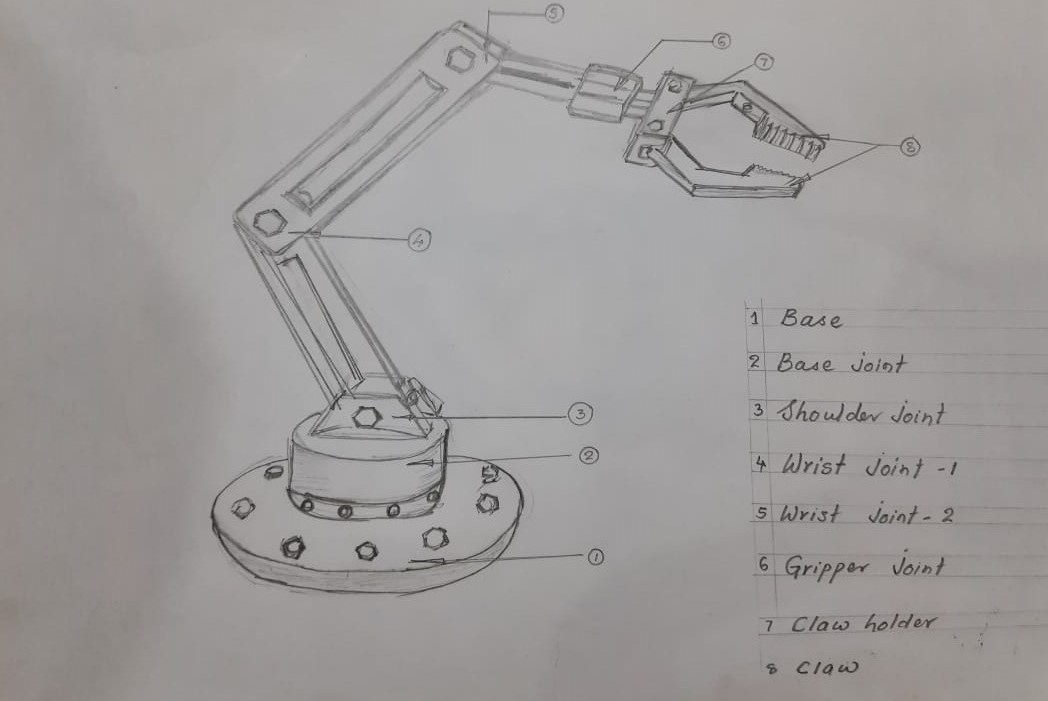 5
6
7
8
4
3
2
1
1 Base
2 Base joint
3 Shoulder joint
4 Wrist joint -1
5 Wrist joint - 2
6 Gripper joint
7 Claw holder
8 Claw